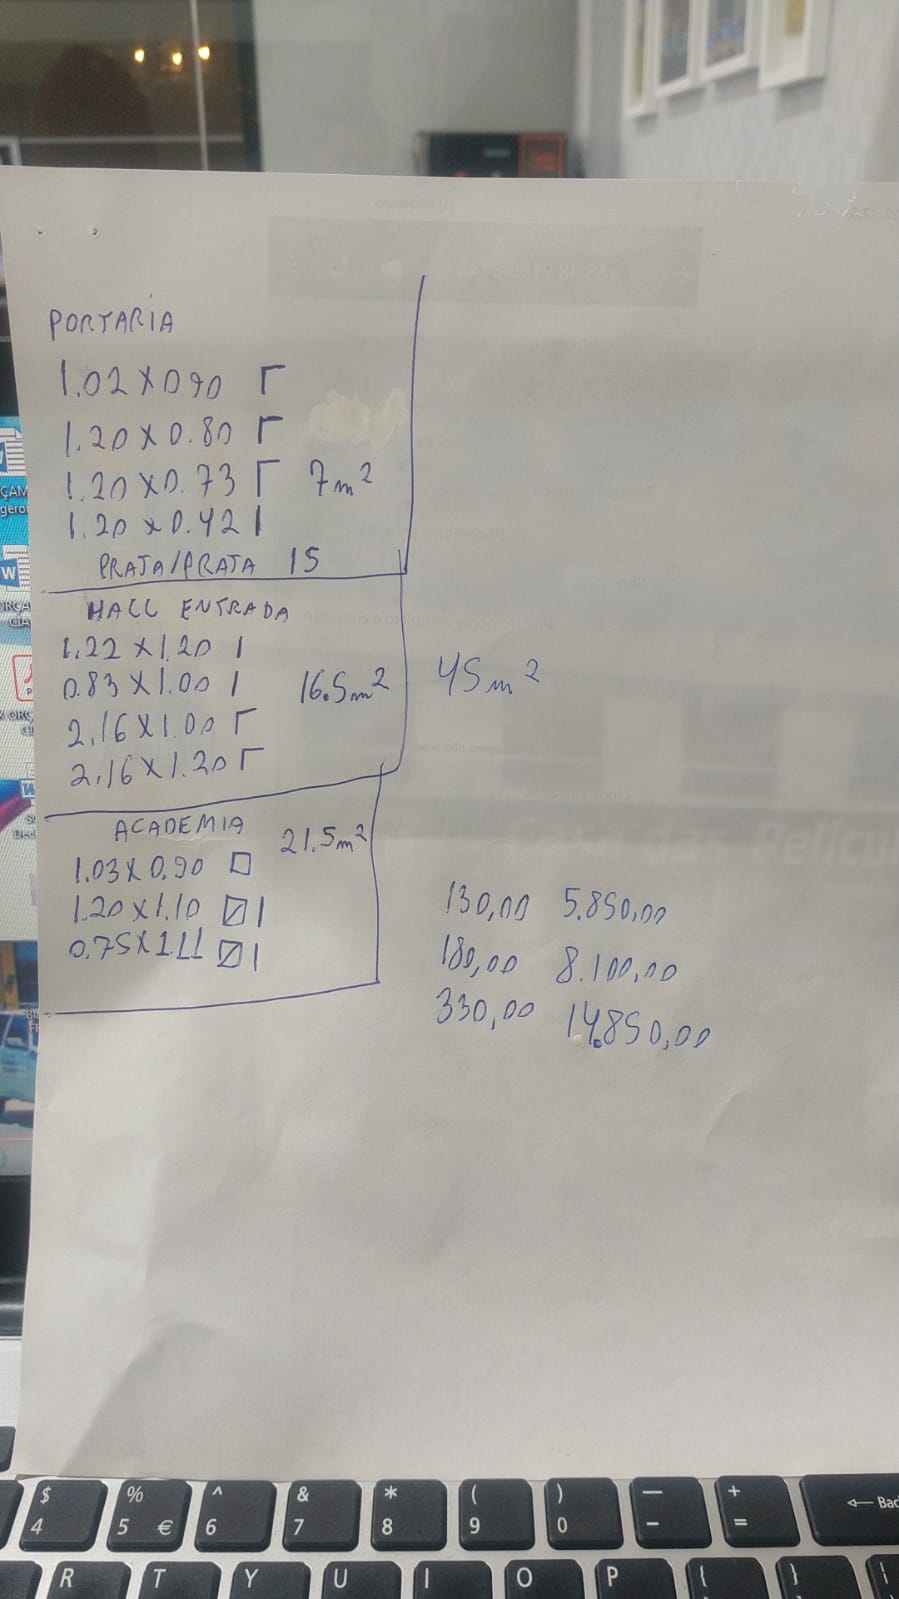 PORTARIA
1.02 X 0.90 Γ
1.20 X 0.80 Γ
1.20 X 0.73 Γ 7m²
1.20 x 0.42 |
PRATA/PRATA 15
HALL ENTRADA
1.22 X 1.20 |
0.83 X 1.00 | 16.5m²
45m²
2.16 X 1.00 Γ
2.16 X 1.20 Γ
ACADEMIA 21.5m²
1.03 X 0.90 □
1.20 X 1.10 ⍁ |
0.75 X 1.11 ⍁ |
130,00 5.850,00
180,00 8.100,00
330,00 14.850,00
$ % ^ & * ( ) — +
4 5 € 6 7 8 9 0 - = ← Bac
R T Y U I O P { }